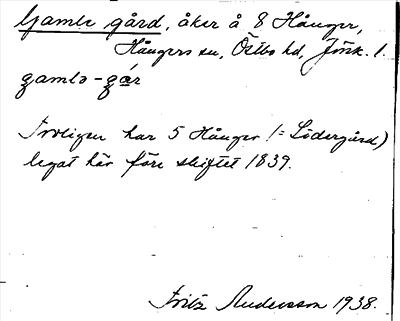 Gamle gård, åker å 8 Hånger,
Hångers sn, Östbo hd, Jönk. l.
gamlə-gár
Troligen har 5 Hånger (= Södergård)
legat här före skiftet 1839.
Fritz Andersson 1938.